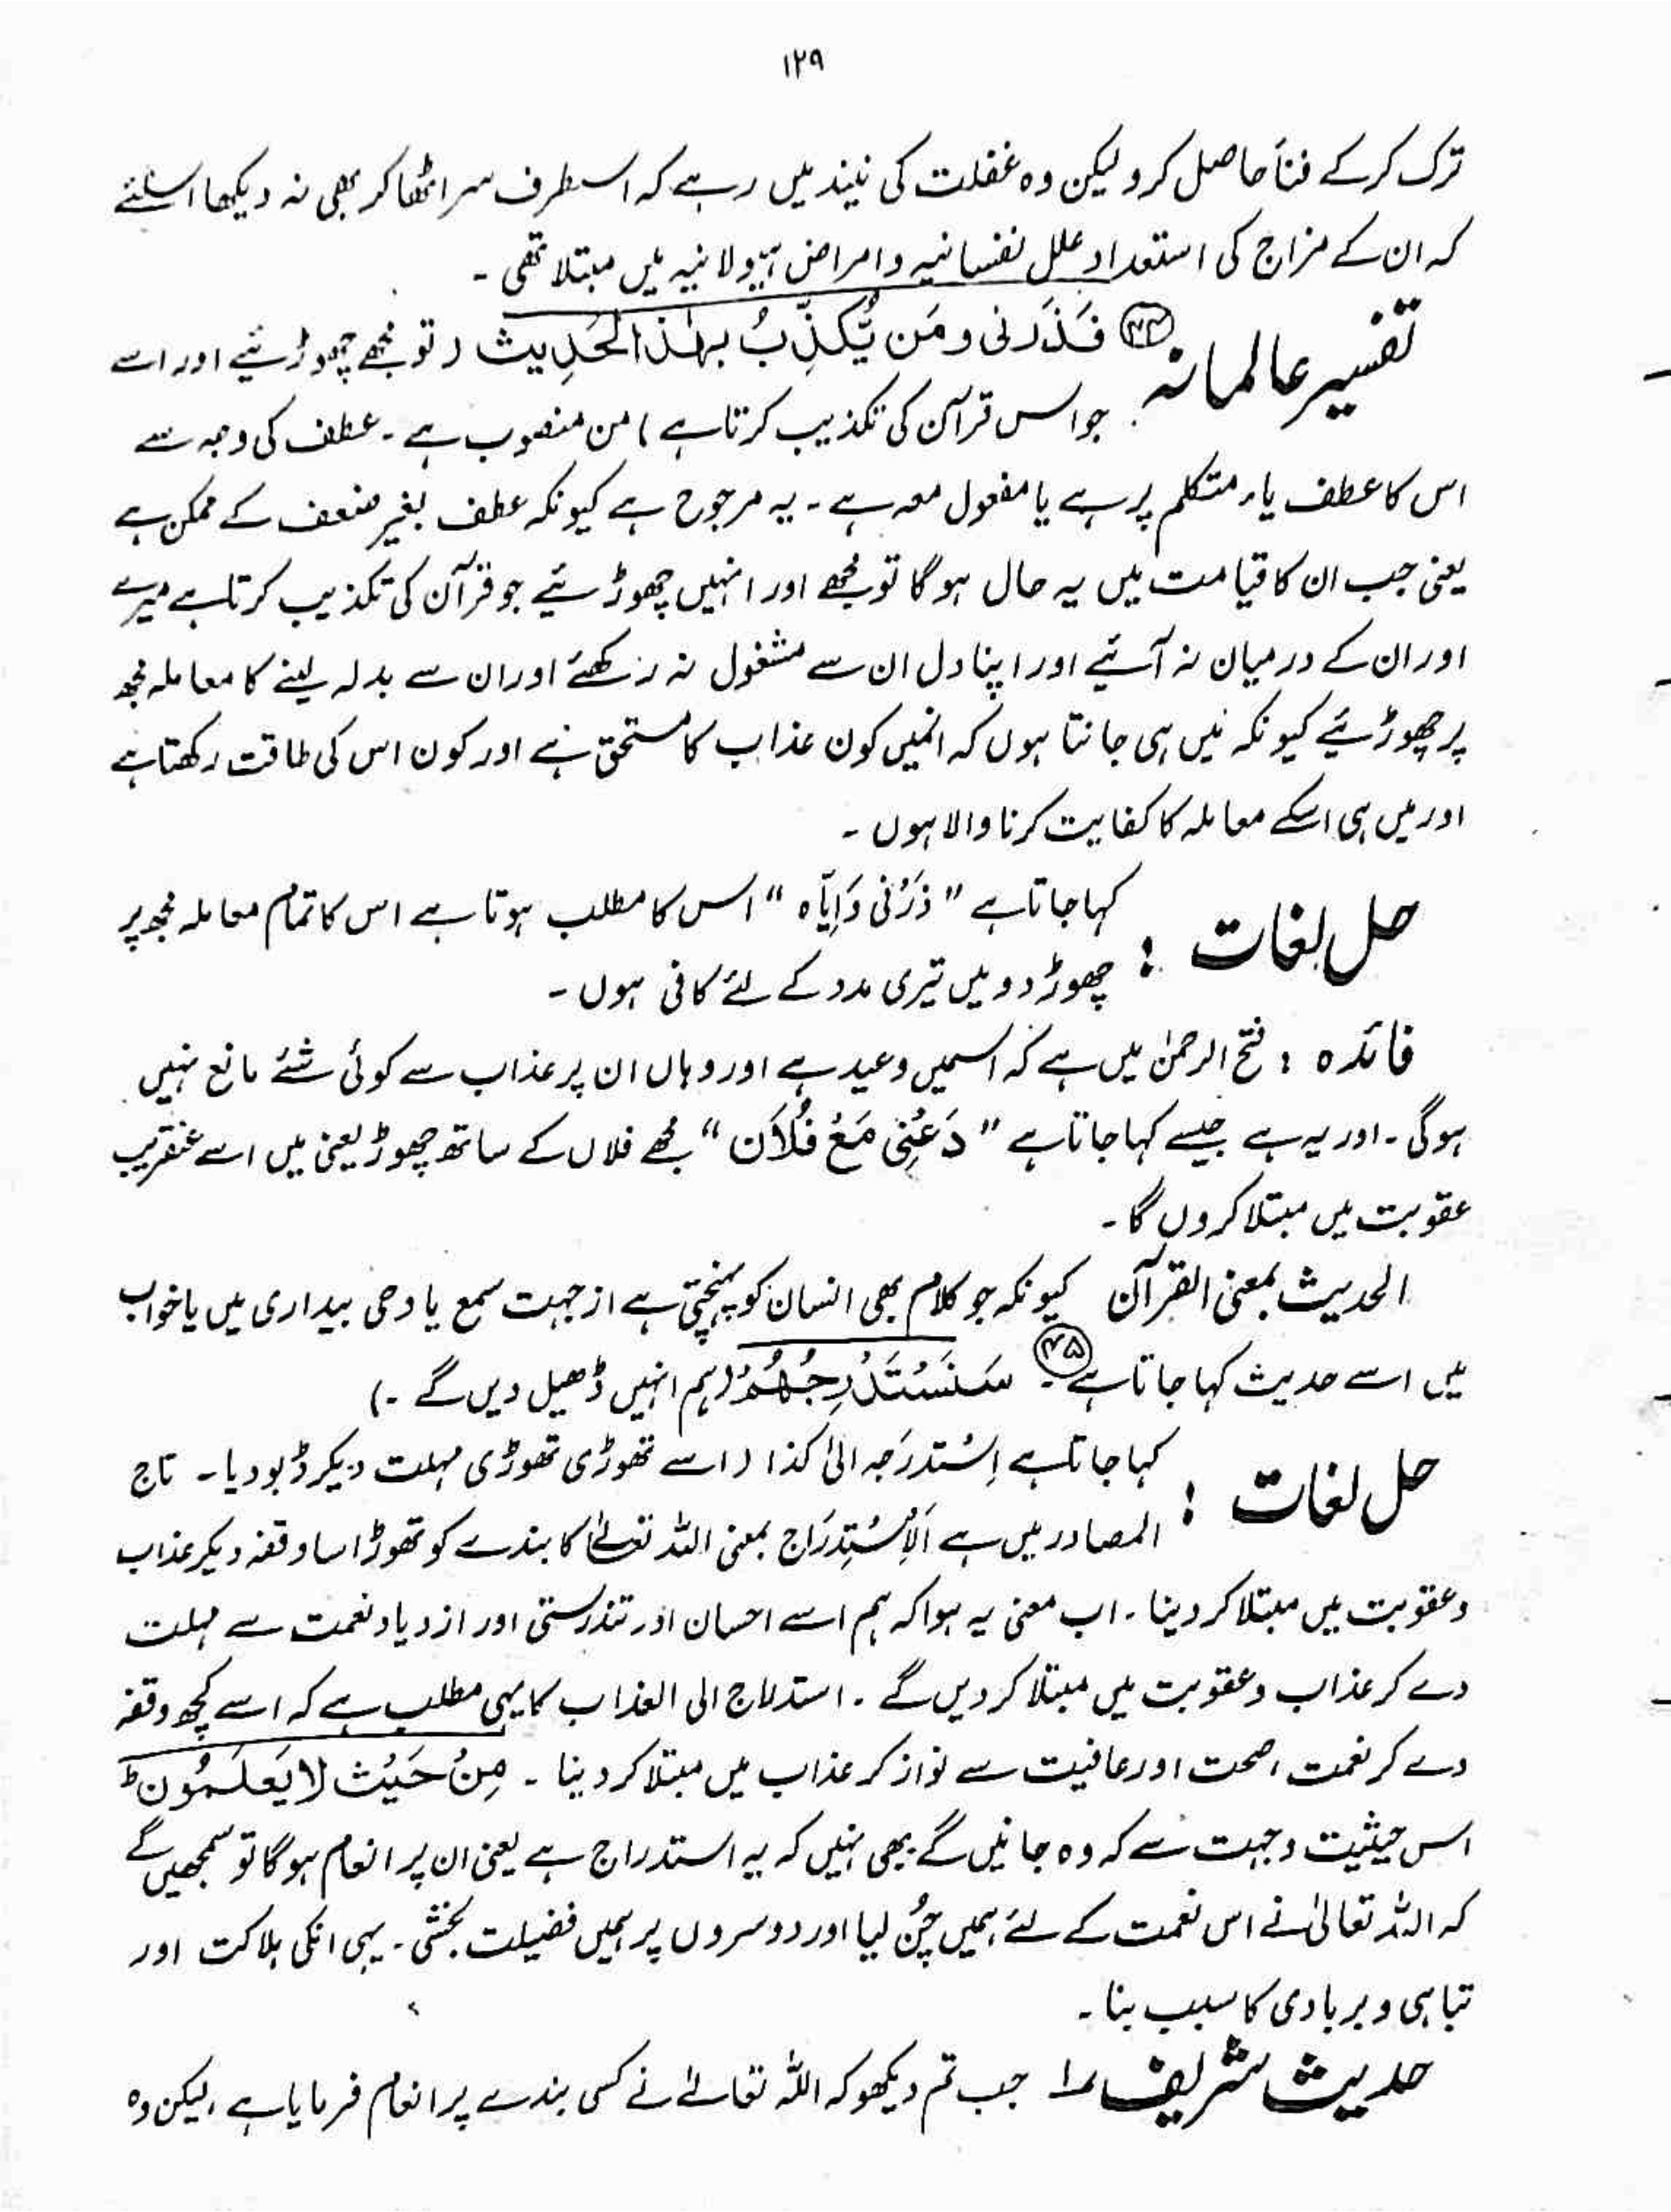 ۱۲۹
ترک کرکے فناً حاصل کرو لیکن وہ غفلت کی نیند میں رہے کہ اسطرف سر اٹھا کر بھی نہ دیکھا اسلئے
کہ ان کے مزاج کی استعداد علل نفسانیہ و امراض ہیولانیہ میں مبتلا تھی ۔
تفسیر عالمانہ ۴۴ فَذَرنی و مَن یُّکَذِّبُ بہٰذا الحَدِیث ( تو مجھے چھوڑئیے اور اسے
جو اس قرآن کی تکذیب کرتا ہے ) من منصوب ہے ۔ عطف کی وجہ سے
اس کا عطف یاء متکلم پر ہے یا مفعول معہ ہے ۔ یہ مرجوح ہے کیونکہ عطف بغیر ضعف کے ممکن ہے
یعنی جب ان کا قیامت میں یہ حال ہوگا تو مجھے اور انہیں چھوڑئیے جو قرآن کی تکذیب کرتا ہے میرے
اور ان کے درمیان نہ آئیے اور اپنا دل ان سے مشغول نہ رکھئے اور ان سے بدلہ لینے کا معاملہ مجھ
پر چھوڑئیے کیونکہ میں ہی جانتا ہوں کہ انمیں کون عذاب کا مستحق ہے اور کون اس کی طاقت رکھتا ہے
اور میں ہی اسکے معاملہ کا کفایت کرنا والا ہوں ۔
حل لغات : کہا جاتا ہے " ذَرْنی وَاِیَّاہ " اس کا مطلب ہوتا ہے اس کا تمام معاملہ مجھ پر
چھوڑ دو میں تیری مدد کے لئے کافی ہوں ۔
فائدہ : فتح الرحمٰن میں ہے کہ اسمیں وعید ہے اور وہاں ان پر عذاب سے کوئی شئے مانع نہیں
ہوگی ۔ اور یہ ہے جیسے کہا جاتا ہے " دَعْنِیْ مَعْ فُلَاَن " مجھے فلاں کے ساتھ چھوڑ یعنی میں اسے عنقریب
عقوبت میں مبتلا کروں گا ۔
الحدیث بمعنی القرآن کیونکہ جو کلام بھی انسان کو پہنچتی ہے از جہت سمع یا وحی بیداری میں یا خواب
میں اسے حدیث کہا جاتا ہے ۔ ۴۵ سَنَسْتَدْرِجُھُمْ ( ہم انہیں ڈھیل دیں گے ۔ )
حل لغات : کہا جاتا ہے اِسْتدرَجہ الیٰ کذا ( اسے تھوڑی تھوڑی مہلت دیکر ڈبو دیا ۔ تاج
المصادر میں ہے اَلْاِسْتِدْرَاج بمعنی اللہ تعالےٰ کا بندے کو تھوڑا سا وقفہ دیکر عذاب
و عقوبت میں مبتلا کر دینا ۔ اب معنی یہ ہوا کہ ہم اسے احسان اور تندرستی اور ازدیاد نعمت سے مہلت
دے کر عذاب و عقوبت میں مبتلا کر دیں گے ۔ استدراج الی العذاب کا یہی مطلب ہے کہ اسے کچھ وقفہ
دے کر نعمت ، صحت اور عافیت سے نواز کر عذاب میں مبتلا کر دینا ۔ مِنْ حَیْث لَا یَعلَمُون ط
اس حیثیت و جہت سے کہ وہ جانیں گے بھی نہیں کہ یہ استدراج ہے یعنی ان پر انعام ہوگا تو سمجھیں گے
کہ اللہ تعالیٰ نے اس نعمت کے لئے ہمیں چُن لیا اور دوسروں پر ہمیں فضیلت بخشی ۔ یہی انکی ہلاکت اور
تباہی و بربادی کا سبب بنا ۔
حدیث شریف ۱ جب تم دیکھو کہ اللہ تعالےٰ نے کسی بندے پر انعام فرمایا ہے ، لیکن وہ